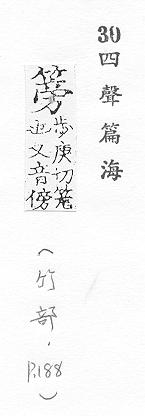 30 四聲篇海
篣
步庚切籠
也又音傍
(竹部, P.188)